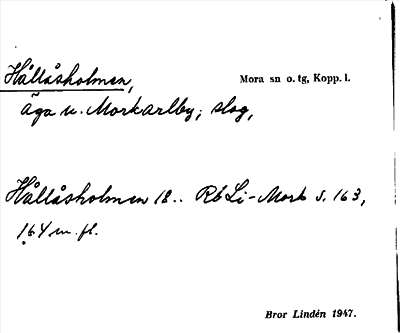 Hållåsholmen,
Mora sn o. tg, Kopp. l.
äga u. Morkarlby; slog,
Hållåsholmen 18.. Rb Li-Mork s. 163,
164 m. fl.
Bror Lindén 1947.